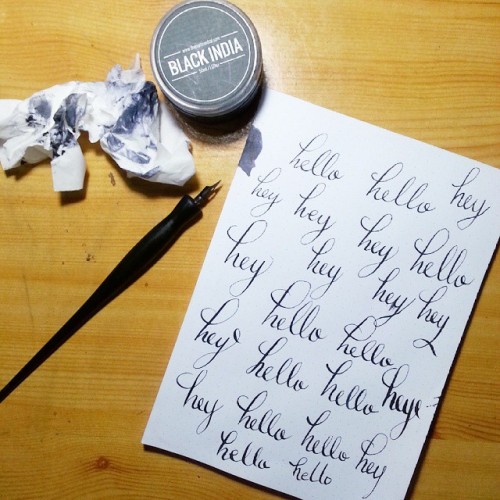 BLACK INDIA
hello hello hey
hey hey hey hello
hey hey hey hey
hello hello
hey hello hello hey
hey hello hello hey
hello hello